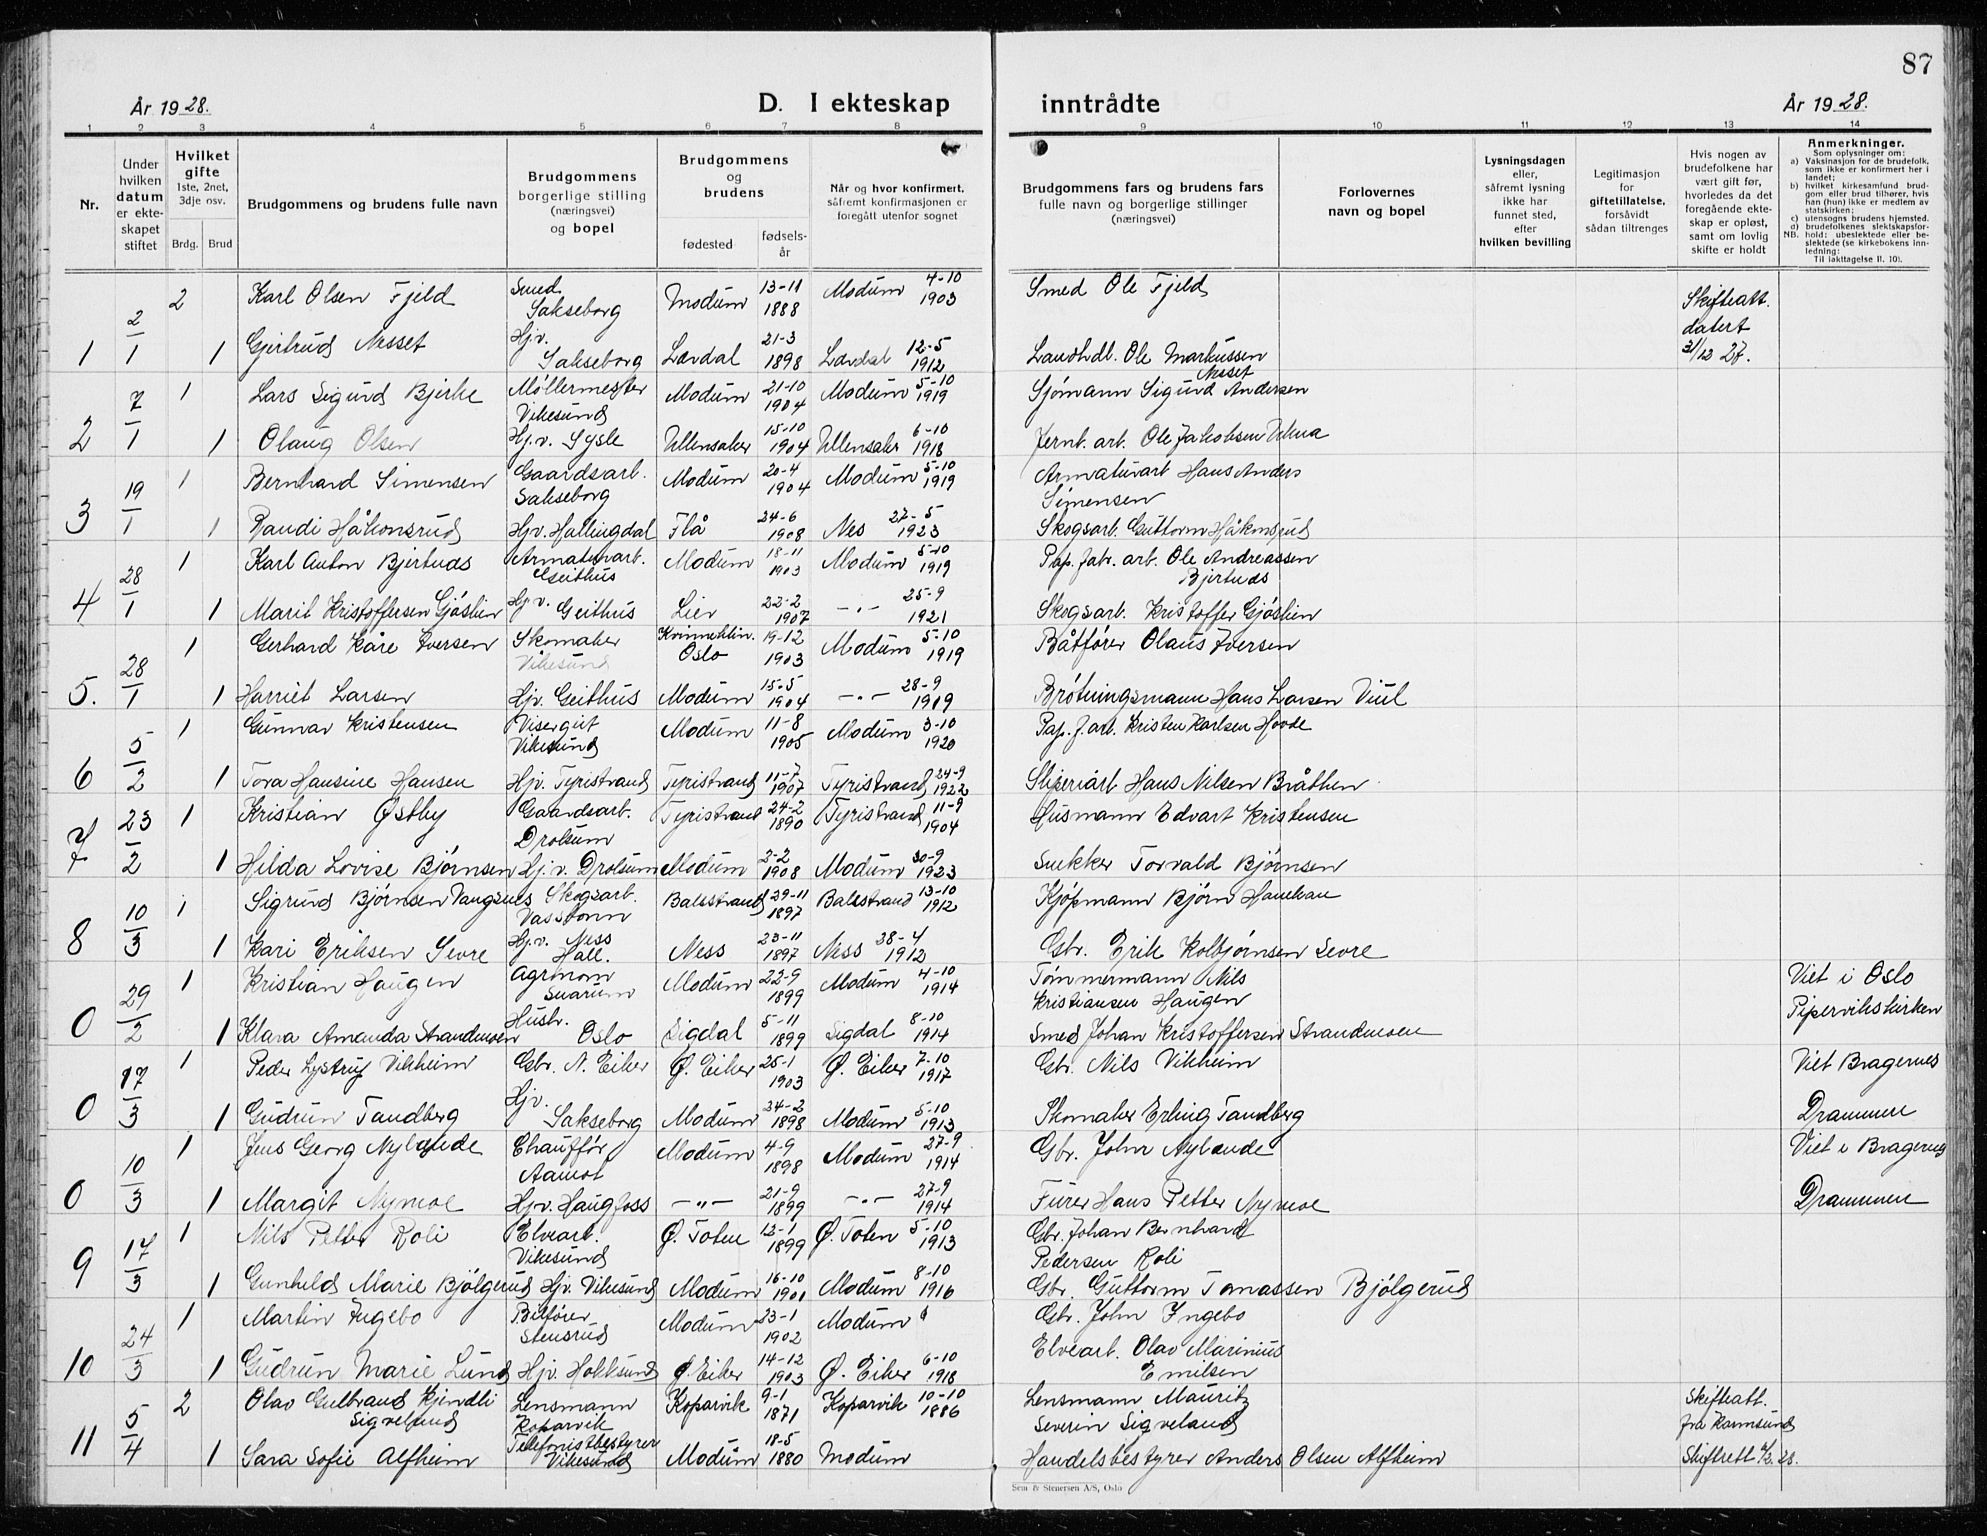 87
År 1928.
D. I ekteskap inntrådte
År 1928.
1 2 3 4 5 6 7 8 9 10 11 12 13 14
Nr.
Under hvilken datum er ekteskapet stiftet
Hvilket gifte 1ste, 2net, 3dje osv.
Brdg. Brud
Brudgommens og brudens fulle navn
Brudgommens borgerlige stilling (næringsvei) og bopel
Brudgommens og brudens
fødested fødselsår
Når og hvor konfirmert, såfremt konfirmasjonen er foregått utenfor sognet
Brudgommens fars og brudens fars fulle navn og borgerlige stillinger (næringsvei)
Forlovernes navn og bopel
Lysningsdagen eller, såfremt lysning ikke har funnet sted, efter hvilken bevilling
Legitimasjon for giftetillatelse, forsåvidt sådan tiltrenges
Hvis nogen av brudefolkene har vært gift før, hvorledes da det foregående ekteskap er opløst, samt om lovlig skifte er holdt
Anmerkninger.
Som oplysninger om:
a) Vaksinasjon for de brudefolk, som ikke er konfirmert her i landet;
b) hvilket kirkesamfund brudgom eller brud tilhører, hvis han (hun) ikke er medlem av statskirken;
c) utensogns brudens hjemsted.
d) brudefolkenes slektskapsforhold:
NB. ubeslektede eller beslektede (se kirkebokens innledning:
Til iakttagelse II. 10).
2 Karl Olsen Fjeld Smed Sakseborg Modum 13-11 1888 Modum 4-10 1903 Smed Ole Fjeld Skifteatt. datert 31/12 27.
1 2/1 1 Gjertrud Nesset Hjv. Sakseborg Lærdal 21-3 1898 Lærdal 12-5 1912 Landhdl. Ole Markussen Nesset
1 Lars Sigurd Bjerke Møllermester Vikesund Modum 21-10 1904 Modum 5-10 1919 Sjømann Sigurd Andersen
2 7/1 1 Olaug Olsen Hj.v. Sysle Ullensaker 15-10 1904 Ullensaker 6-10 1918 Jernb. arb. Ole Jakobsen
1 Bernhard Simensen Gaardsarb. Sakseborg Modum 20-4 1904 Modum 5-10 1919 Armaturarb Hans Anders Simensen
3 19/1 1 Randi Håkonsrud Hjv. Hallingdal Flå 24-6 1908 Nes 27-5 1923 Skogsarb. Guttorm Håkonsrud
1 Karl Anton Bjertuds Armaturarb. Geithus Modum 18-11 1903 Modum 5-10 1919 Pap. fabr. arb. Ole Andreassen Bjertuds
4 28/1 1 Marit Kristoffersen Gjøslien Hjv. Geithus Lier 22-2 1907 -"- 25-9 1921 Skogsarb. Kristoffer Gjøslien
1 Gerhard Kåre Iversen Skomaker Vikesund Kvinneklin. Oslo 19-12 1903 Modum 5-10 1919 Båtfører Olaus Iversen
5. 28/1 1 Harriet Larsen Hjv. Geithus Modum 15-5 1904 -"- 28-9 1919 Brøtningsmann Hans Larsen Viul
1 Gunnar Kristensen Visergut Vikesund Modum 11-8 1905 Modum 3-10 1920 Pap. f. arb. Kristen Karlsen Hovde
6 5/2 1 Tora Hansine Hansen Hjv. Tyristrand Tyristrand 11-7 1907 Tyristrand 24-9 1922 Sliperiarb Hans Nilsen Bråthen
1 Kristian Østby Gaardsarb. Drolsum Tyristrand 24-2 1890 Tyristrand 11-9 1904 Husmann Edvart Kristensen
7 23/2 1 Hilda Lovise Bjørnsen Hj.v. Drolsum Modum 2-2 1908 Modum 30-9 1923 Snekker Torvald Bjørnsen
1 Sigrund Bjørnsen Vangsnes Skogsarb. Vassbonn Balestrand 29-11 1897 Balestrand 13-10 1912 Kjøpmann Bjørn
8 10/3 1 Kari Eriksen Sevre Hj.v. Ness Hall. Ness 23-11 1897 Ness 28-4 1912 Gbr. Erik Kolbjørnsen Sevre
1 Kristian Haugen Agronom Snarum Modum 22-9 1899 Modum 4-10 1914 Tømmermann Nils Kristiansen Haugen Viet i Oslo Pipervikskirken
0 29/2 1 Klara Amanda Strandmoen Husbr. Oslo Sigdal 5-11 1899 Sigdal 8-10 1914 Smed Johan Kristoffersen Strandmoen
1 Peder Lystrup Vikheim Gbr. N. Eiker Ø. Eiker 25-1 1903 Ø. Eiker 7-10 1917 Gbr. Nils Vikheim Viet Bragernes Drammen
0 17/3 1 Gudrun Tandberg Hjv. Sakseborg Modum 24-2 1898 Modum 5-10 1913 Skomaker Erling Tandberg
1 Jens Georg Nylende Chauffør Aamot Modum 4-9 1898 Modum 27-9 1914 Gbr. John Nylende Viet i Bragernes Drammen
0 10/3 1 Margit Nymoe Hjv. Haugfoss -"- 21-9 1899 -"- 27-9 1914 Furer Hans Petter Nymoe
1 Nils Petter Roli Elvearb. Vikesund Ø. Toten 12-1 1899 Ø. Toten 5-10 1913 Gbr. Johan Bernhard Pedersen Roli
9 17/3 1 Gunhild Marie Bjølgerud Hjv. Vikesund Modum 16-10 1901 Modum 8-10 1916 Gbr. Guttorm Tomassen Bjølgerud
1 Martin Ingebo Bilfører Stensrud Modum 23-1 1902 Modum Gbr. John Ingebo
10 24/3 1 Gudrun Marie Lund Hjv. Hokksund Ø. Eiker 14-12 1903 Ø. Eiker 6-10 1918 Elvearb. Olav Marinius Emilsen
2 Olav Gulbrand Kjendli Sigveland Lensmann Koparvik Koparvik 9-1 1871 Koparvik 10-10 1886 Lensmann Mauritz Severin Sigveland Skifteatt. fra Karmsund Skifterett 4/2.28.
11 5/4 1 Sara Sofie Alfheim Telefonistbestyrer Vikesund Modum 18-5 1880 Modum Handelsbestyrer Anders Olsen Alfheim
Sem & Stenersen A/S, Oslo